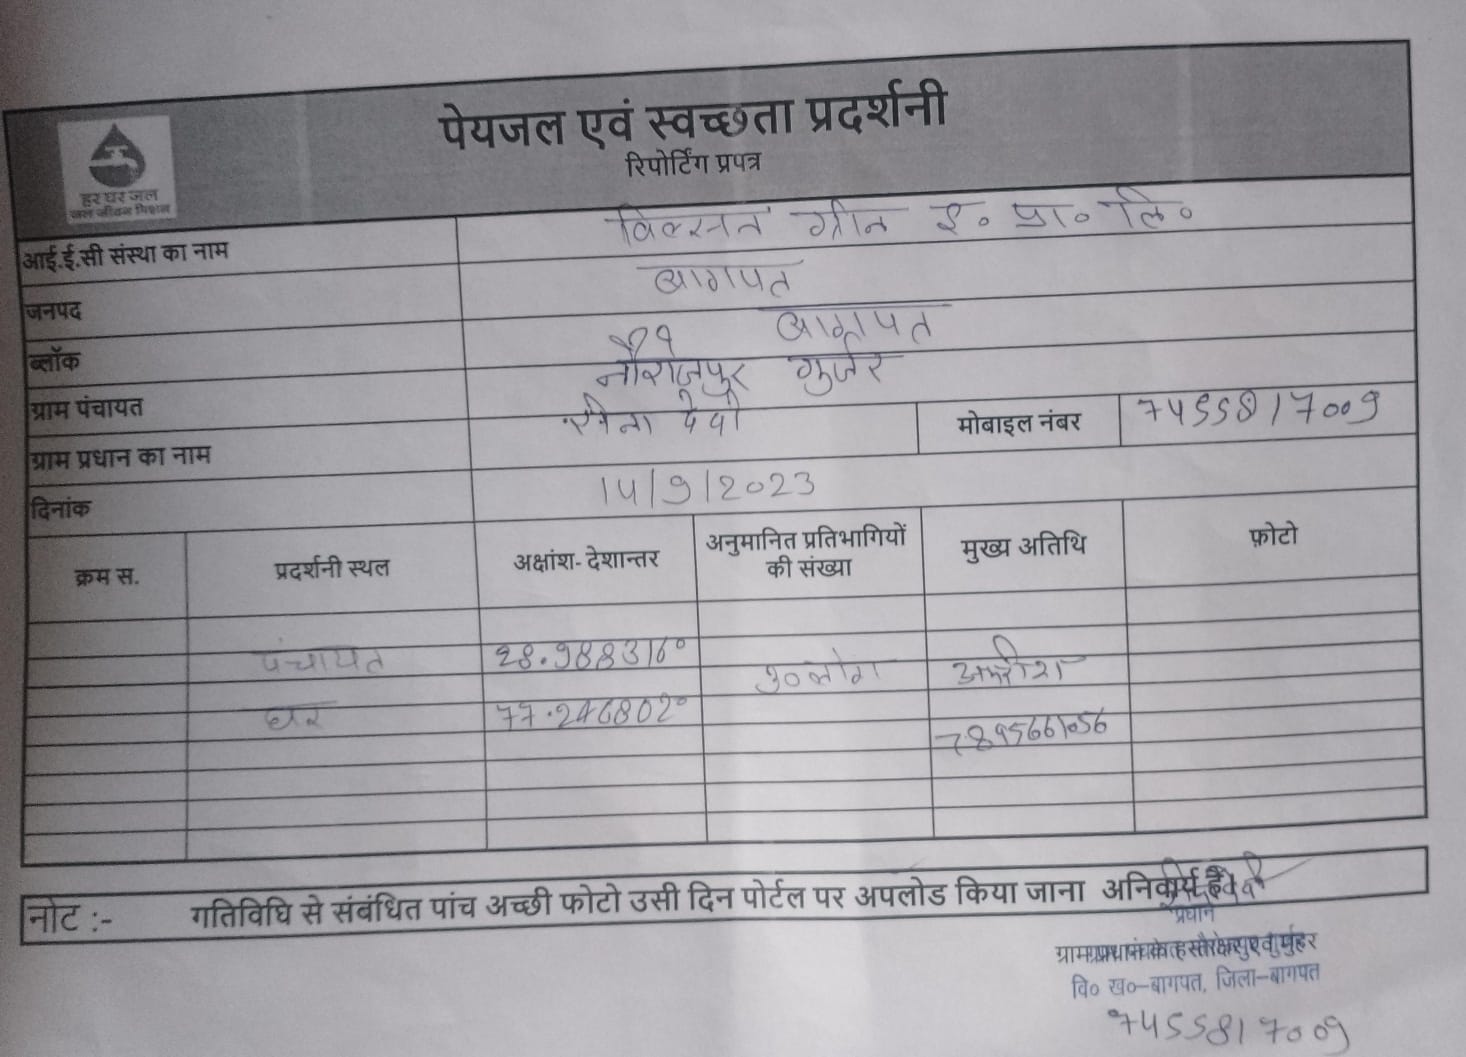 पेयजल एवं स्वच्छता प्रदर्शनी
रिपोर्टिंग प्रपत्र
हर घर जल
जल जीवन मिशन
आई.ई.सी संस्था का नाम ग्रीन इ० प्रा० लि०
जनपद बागपत
ब्लॉक बागपत
ग्राम पंचायत नौरोजपुर गुर्जर
ग्राम प्रधान का नाम देवी मोबाइल नंबर 7455817009
दिनांक 14/9/2023
क्रम स. प्रदर्शनी स्थल अक्षांश- देशान्तर अनुमानित प्रतिभागियों की संख्या मुख्य अतिथि फ़ोटो
पंचायत 28.988316°
लोग
घर 77.246802°
7895661056
नोट :- गतिविधि से संबंधित पांच अच्छी फोटो उसी दिन पोर्टल पर अपलोड किया जाना अनिवार्य है।
प्रधान
वि० ख०-बागपत, जिला-बागपत
7455817009